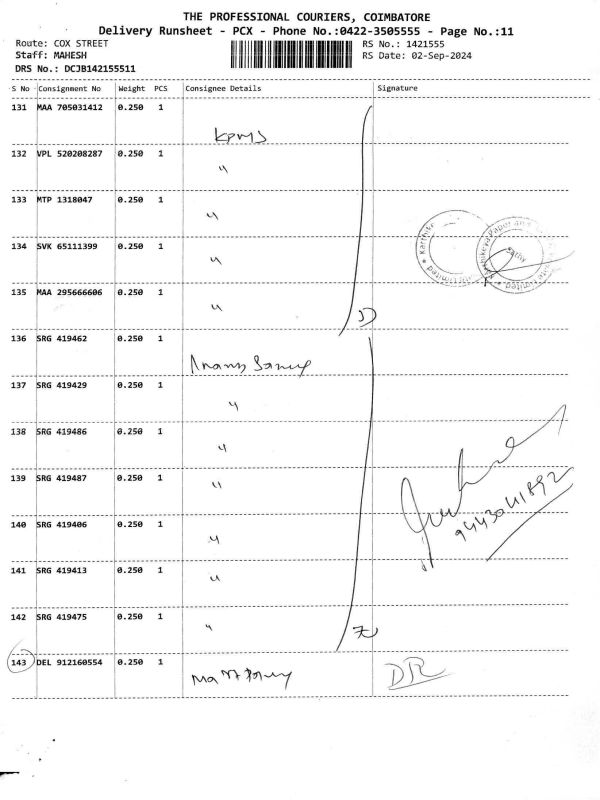 THE PROFESSIONAL COURIERS, COIMBATORE
Delivery Runsheet - PCX - Phone No.:0422-3505555 - Page No.:11
Route: COX STREET
RS No.: 1421555
Staff: MAHESH
RS Date: 02-Sep-2024
DRS No.: DCJB142155511
S No Consignment No Weight PCS Consignee Details Signature
131 MAA 705031412 0.250 1
KPMS
132 VPL 520208287 0.250 1
"
133 MTP 1318047 0.250 1
"
134 SVK 65111399 0.250 1
"
135 MAA 295666606 0.250 1
"
136 SRG 419462 0.250 1
137 SRG 419429 0.250 1
"
138 SRG 419486 0.250 1
"
139 SRG 419487 0.250 1
"
140 SRG 419406 0.250 1
"
141 SRG 419413 0.250 1
"
142 SRG 419475 0.250 1
"
143 DEL 912160554 0.250 1
DR